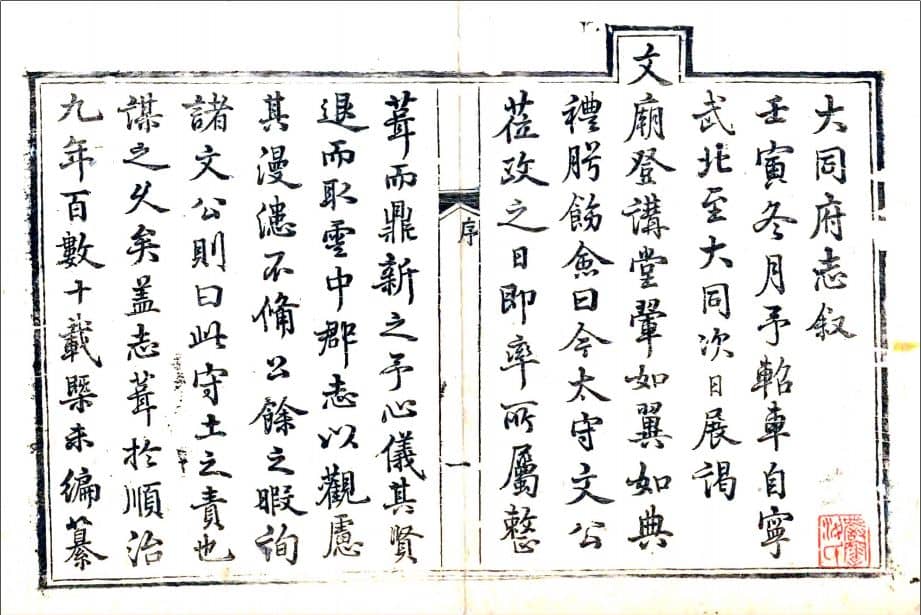 大同府志叙
壬寅冬月予軺車自寧
武北至大同次日展謁
文廟登講堂翬如翼如典
禮肹飭僉曰今太守文公
莅政之日即率所屬整
序
一
葺而鼎新之予心儀其賢
退而取雲中郡志以觀慮
其漫漶不脩公餘之暇詢
諸文公則曰此守土之責也
謀之久矣盖志葺於順治
九年百數十載槩未編纂